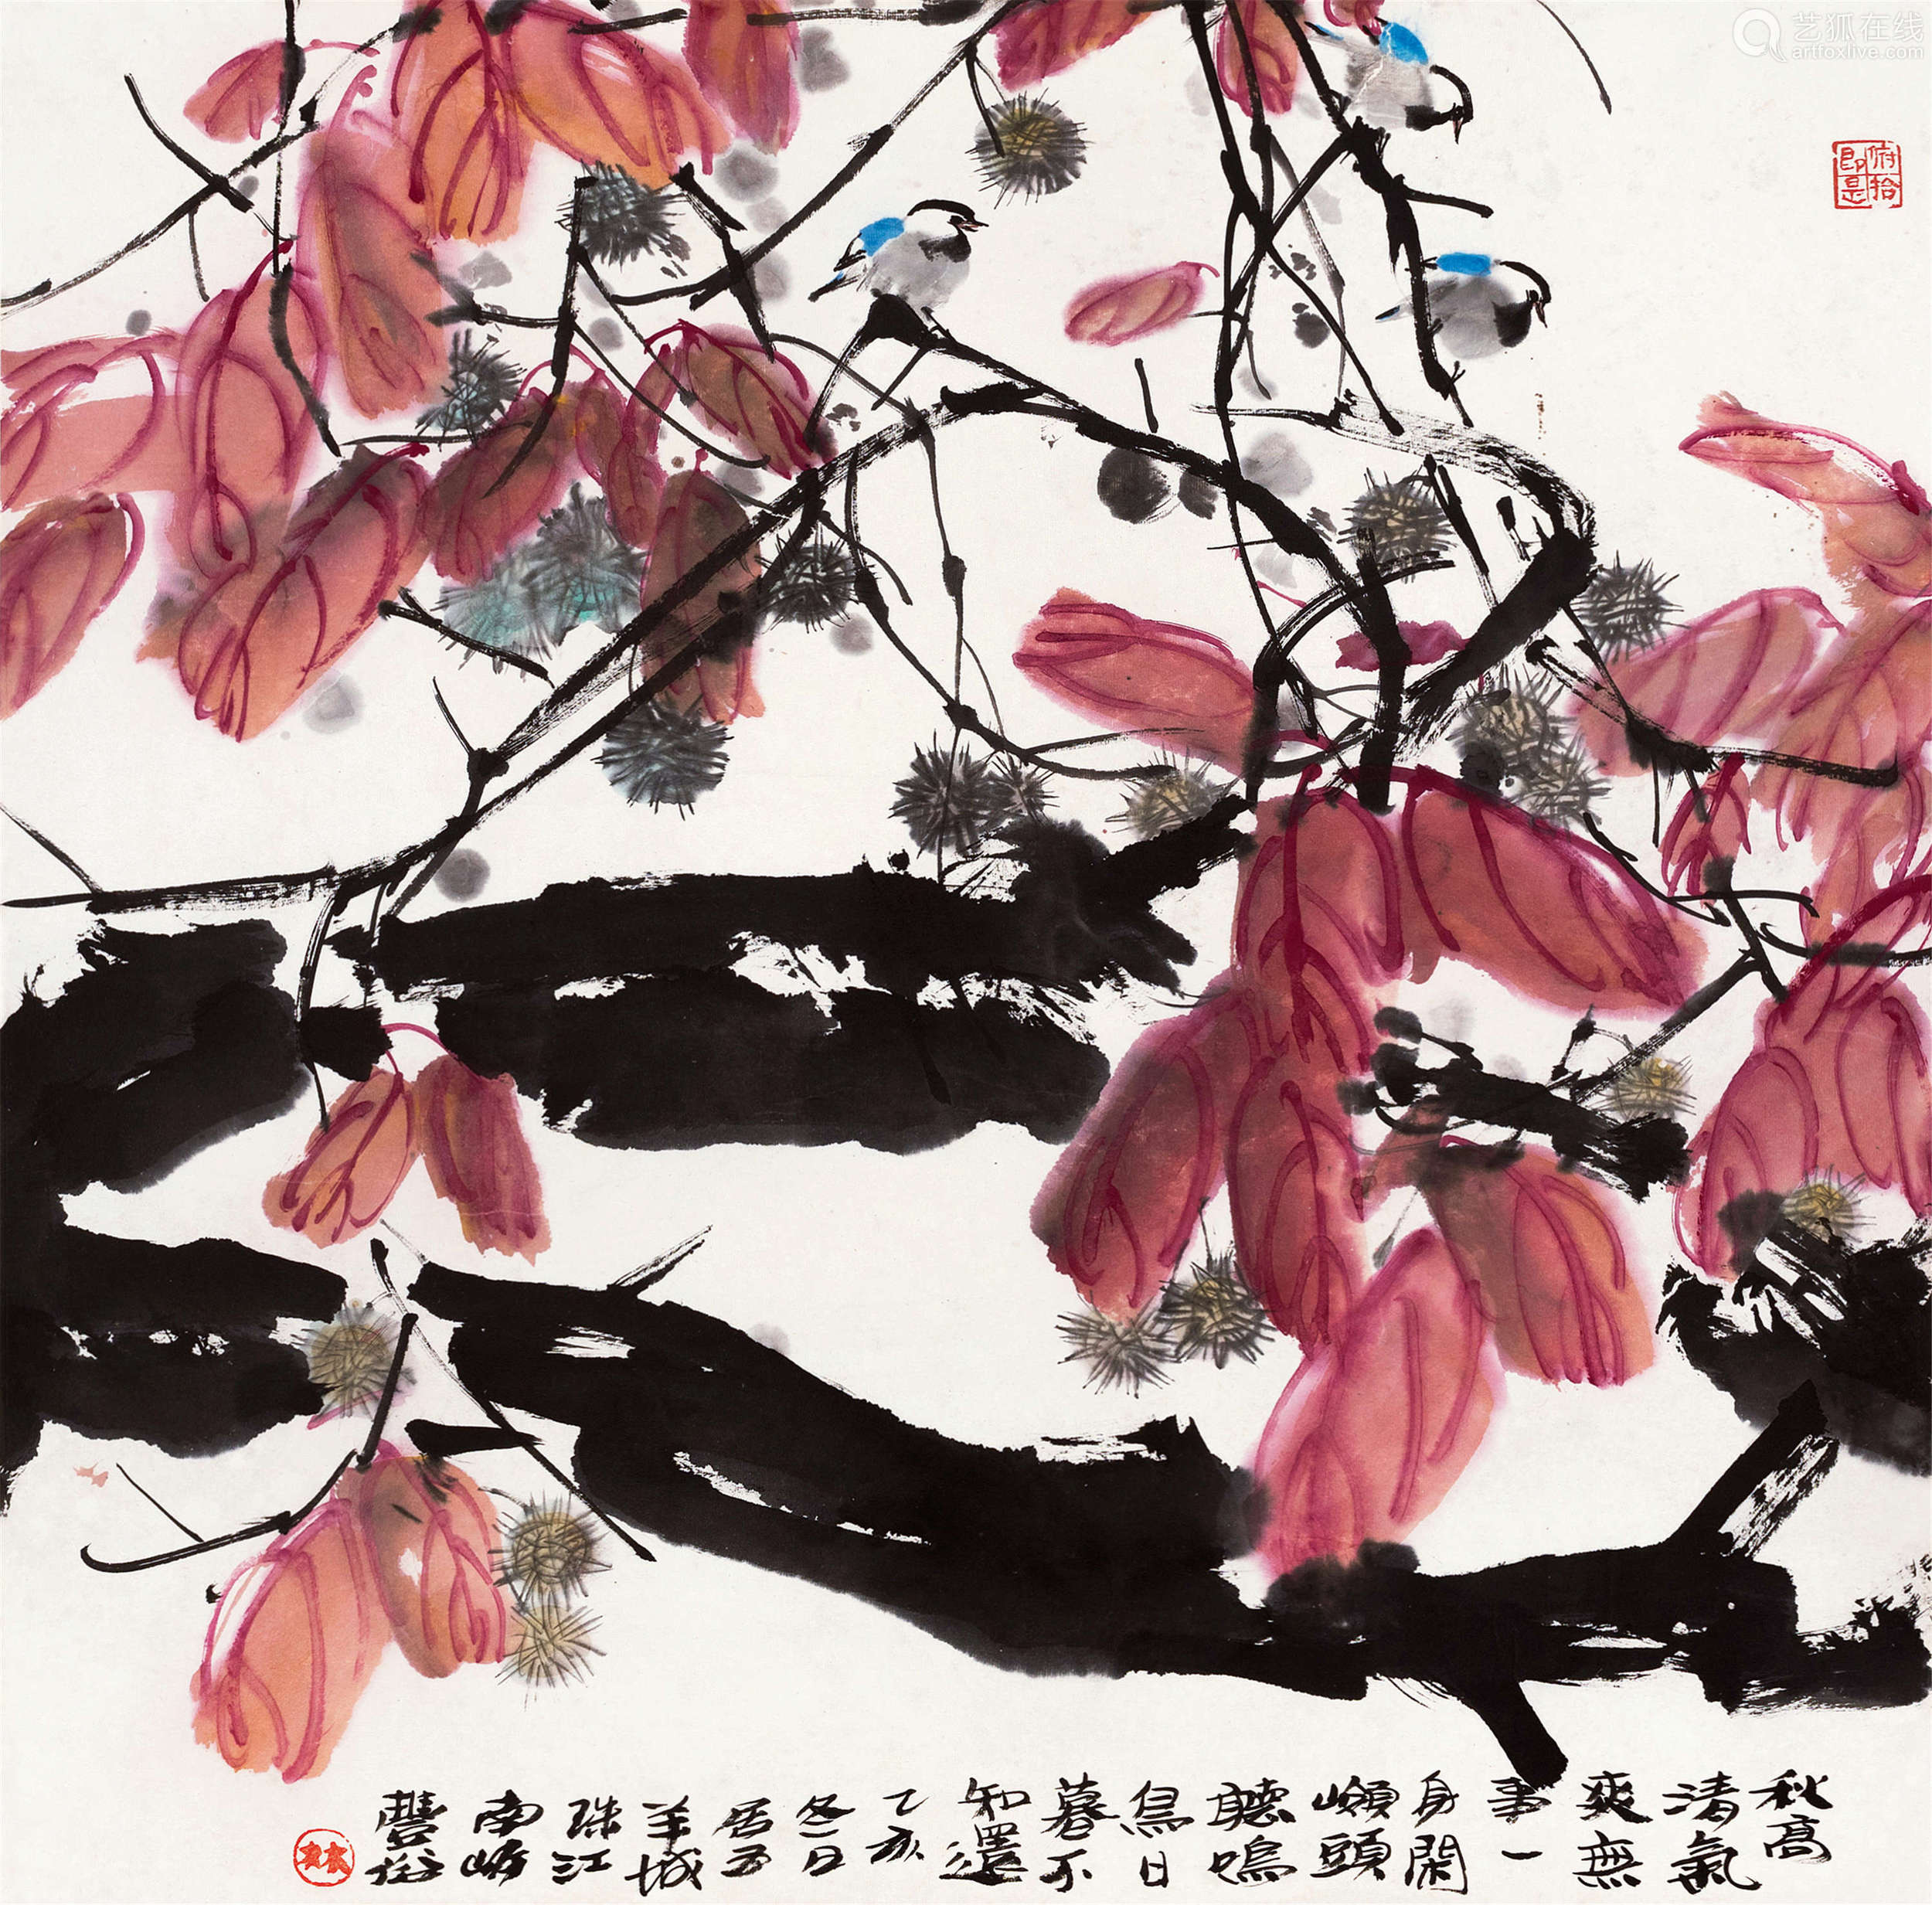 艺狐在线
artfoxlive.com
俯拾即是
秋高
清氣
爽無
事一
身閑
頭
聽鳴
鳥日
暮不
知還
乙亥
冬日
居五
羊城
珠江
南岸
豐俗
林